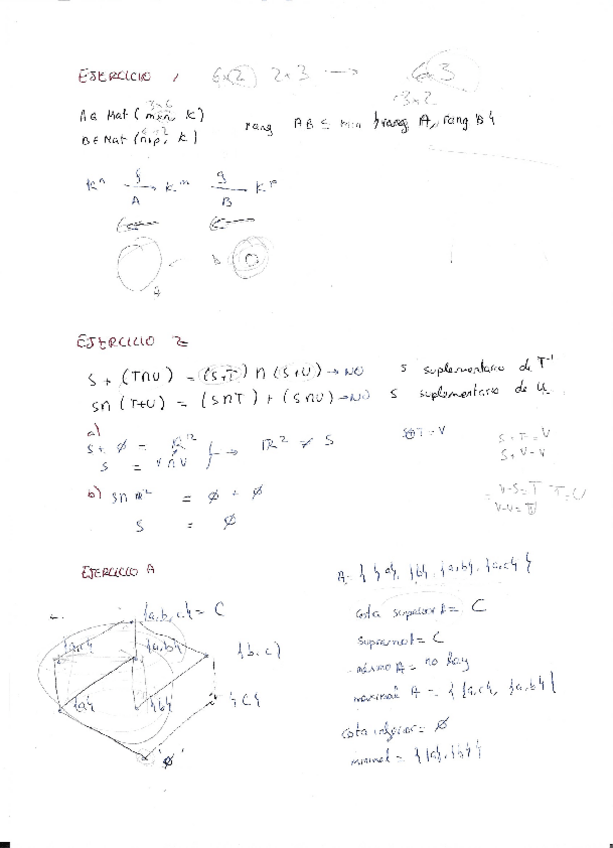 EJERCICIO 1 6x2 2x3 → 6x3
3x2
3x6
A ∈ Mat (mxn, K) rang AB ≤ min {rang A, rang B}
6x2
B ∈ Mat (nxp, K)
Kⁿ f→ Kᵐ g→ Kᵖ
A B
b
A
EJERCICIO 2
S + (T∩U) = (S+T) ∩ (S+U) → NO S suplementario de T
S∩(T+U) = (S∩T) + (S∩U) → NO S suplementario de U
a)
S + ∅ = ℝ² } → ℝ² ≠ S
S = V∩V
S+T = V
S+T = V
S+V = V
b) S∩ℝ² = ∅ + ∅
S = ∅
V-S = T T=U
EJERCICIO A
A = { {a}, {b}, {a,b}, {a,c} }
{a,b,c} = C
{a,c} {a,b} {b,c}
{a} {b} {c}
∅
cota superior A = C
supremo A = C
máximo A = no hay
maximal A = { {a,c}, {a,b} }
cota inferior = ∅
minimal = { {a}, {b} }